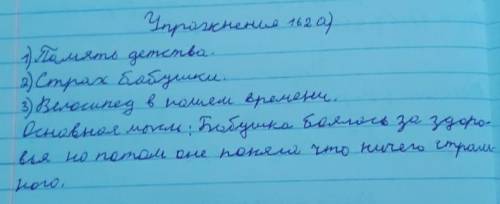 Упражнения 162 а)
1) Память детства.
2) Страх бабушки.
3) Велосипед в нашем времени.
Основная мысм: Бабушка боялась за здоро-
вья но потом оне поняла что ничего страш-
ного.